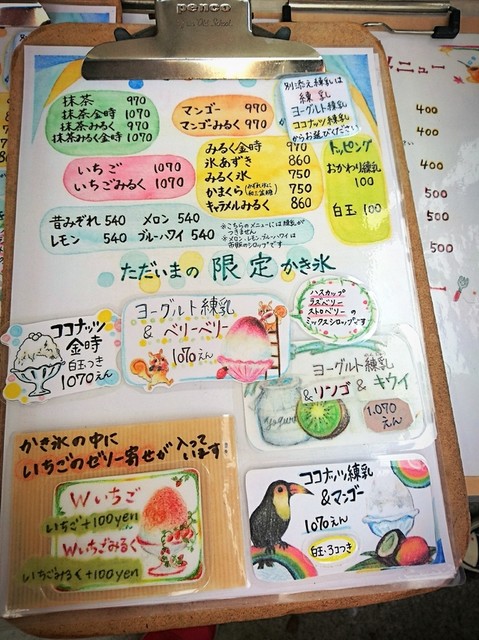 penco
抹茶 970
抹茶金時 1070
抹茶みるく 970
抹茶みるく金時 1070
マンゴー 970
マンゴーみるく 970
別添え練乳は
練乳
ヨーグルト練乳
ココナッツ練乳
からお選びください
いちご 1070
いちごみるく 1070
みるく金時 970
氷あずき 860
みるく氷 750
かまくら 750
キャラメルみるく 860
トッピング
おかわり練乳
100
白玉 100
昔みぞれ 540 メロン 540
レモン 540 ブルーハワイ 540
※こちらのメニューには練乳が
つきません
※メロン・レモン・ブルーハワイは
市販のシロップです
ただいまの限定かき氷
ココナッツ
金時
白玉つき
1070えん
ヨーグルト練乳
&ベリーベリー
1070えん
ハスカップ
ラズベリー
ストロベリーの
ミックスシロップです
ヨーグルト練乳
&リンゴ&キウイ
1,070
えん
かき氷の中に
いちごのゼリー寄せが入って
います
Wいちご
いちご+100yen
Wいちごみるく
いちごみるく+100yen
ココナッツ練乳
&マンゴー
1070えん
白玉・3コつき
メニュー
400
400
400
500
500
500